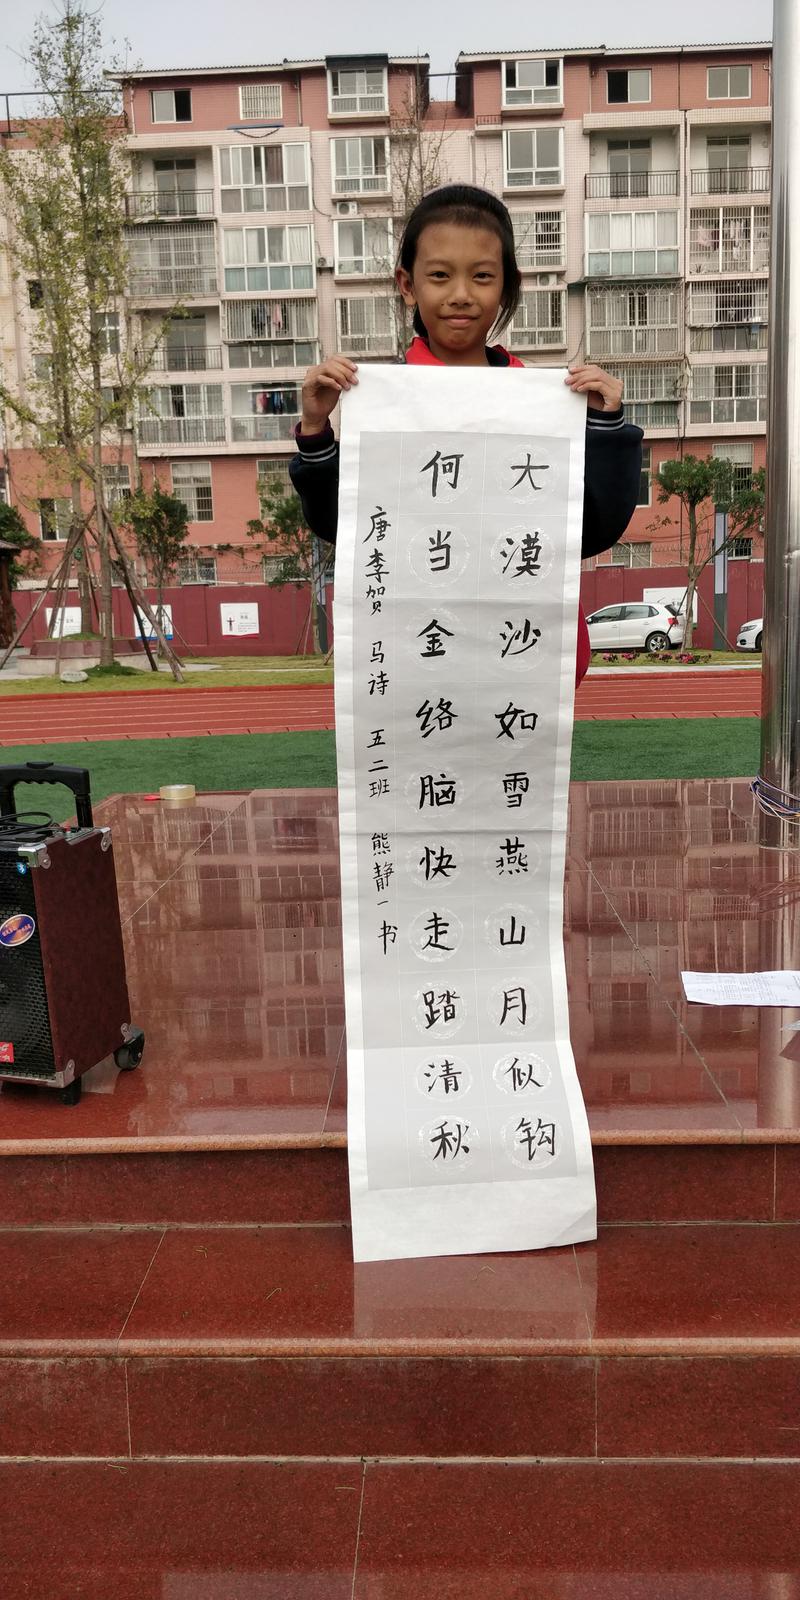 大漠沙如雪燕山月似钩
何当金络脑快走踏清秋
唐李贺 马诗 五二班 熊静一书